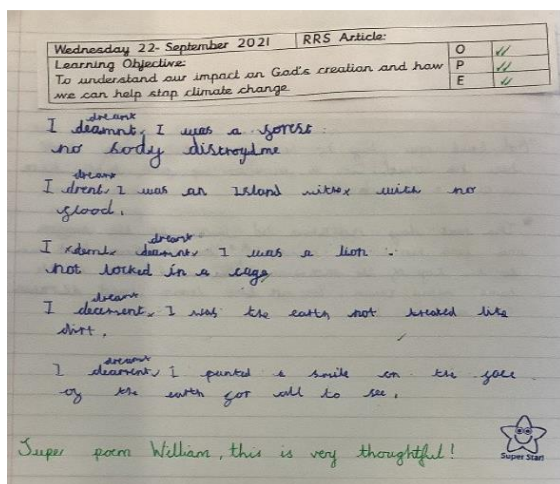 Wednesday 22- September 2021 RRS Article:
Learning Objective: O
To understand our impact on God's creation and how P
we can help stop climate change E
dreamt
I deamnt, I was a forest.
no body distroydme
dreamt
I drent, I was an Island with no
flood.
dreamt
I I was a lion.
not locked in a cage
dreamt
I I was the earth not treated like
dirt.
dreamt
I I punted a smile on the face
of the earth for all to see.
Super poem William, this is very thoughtful!
Super Star!